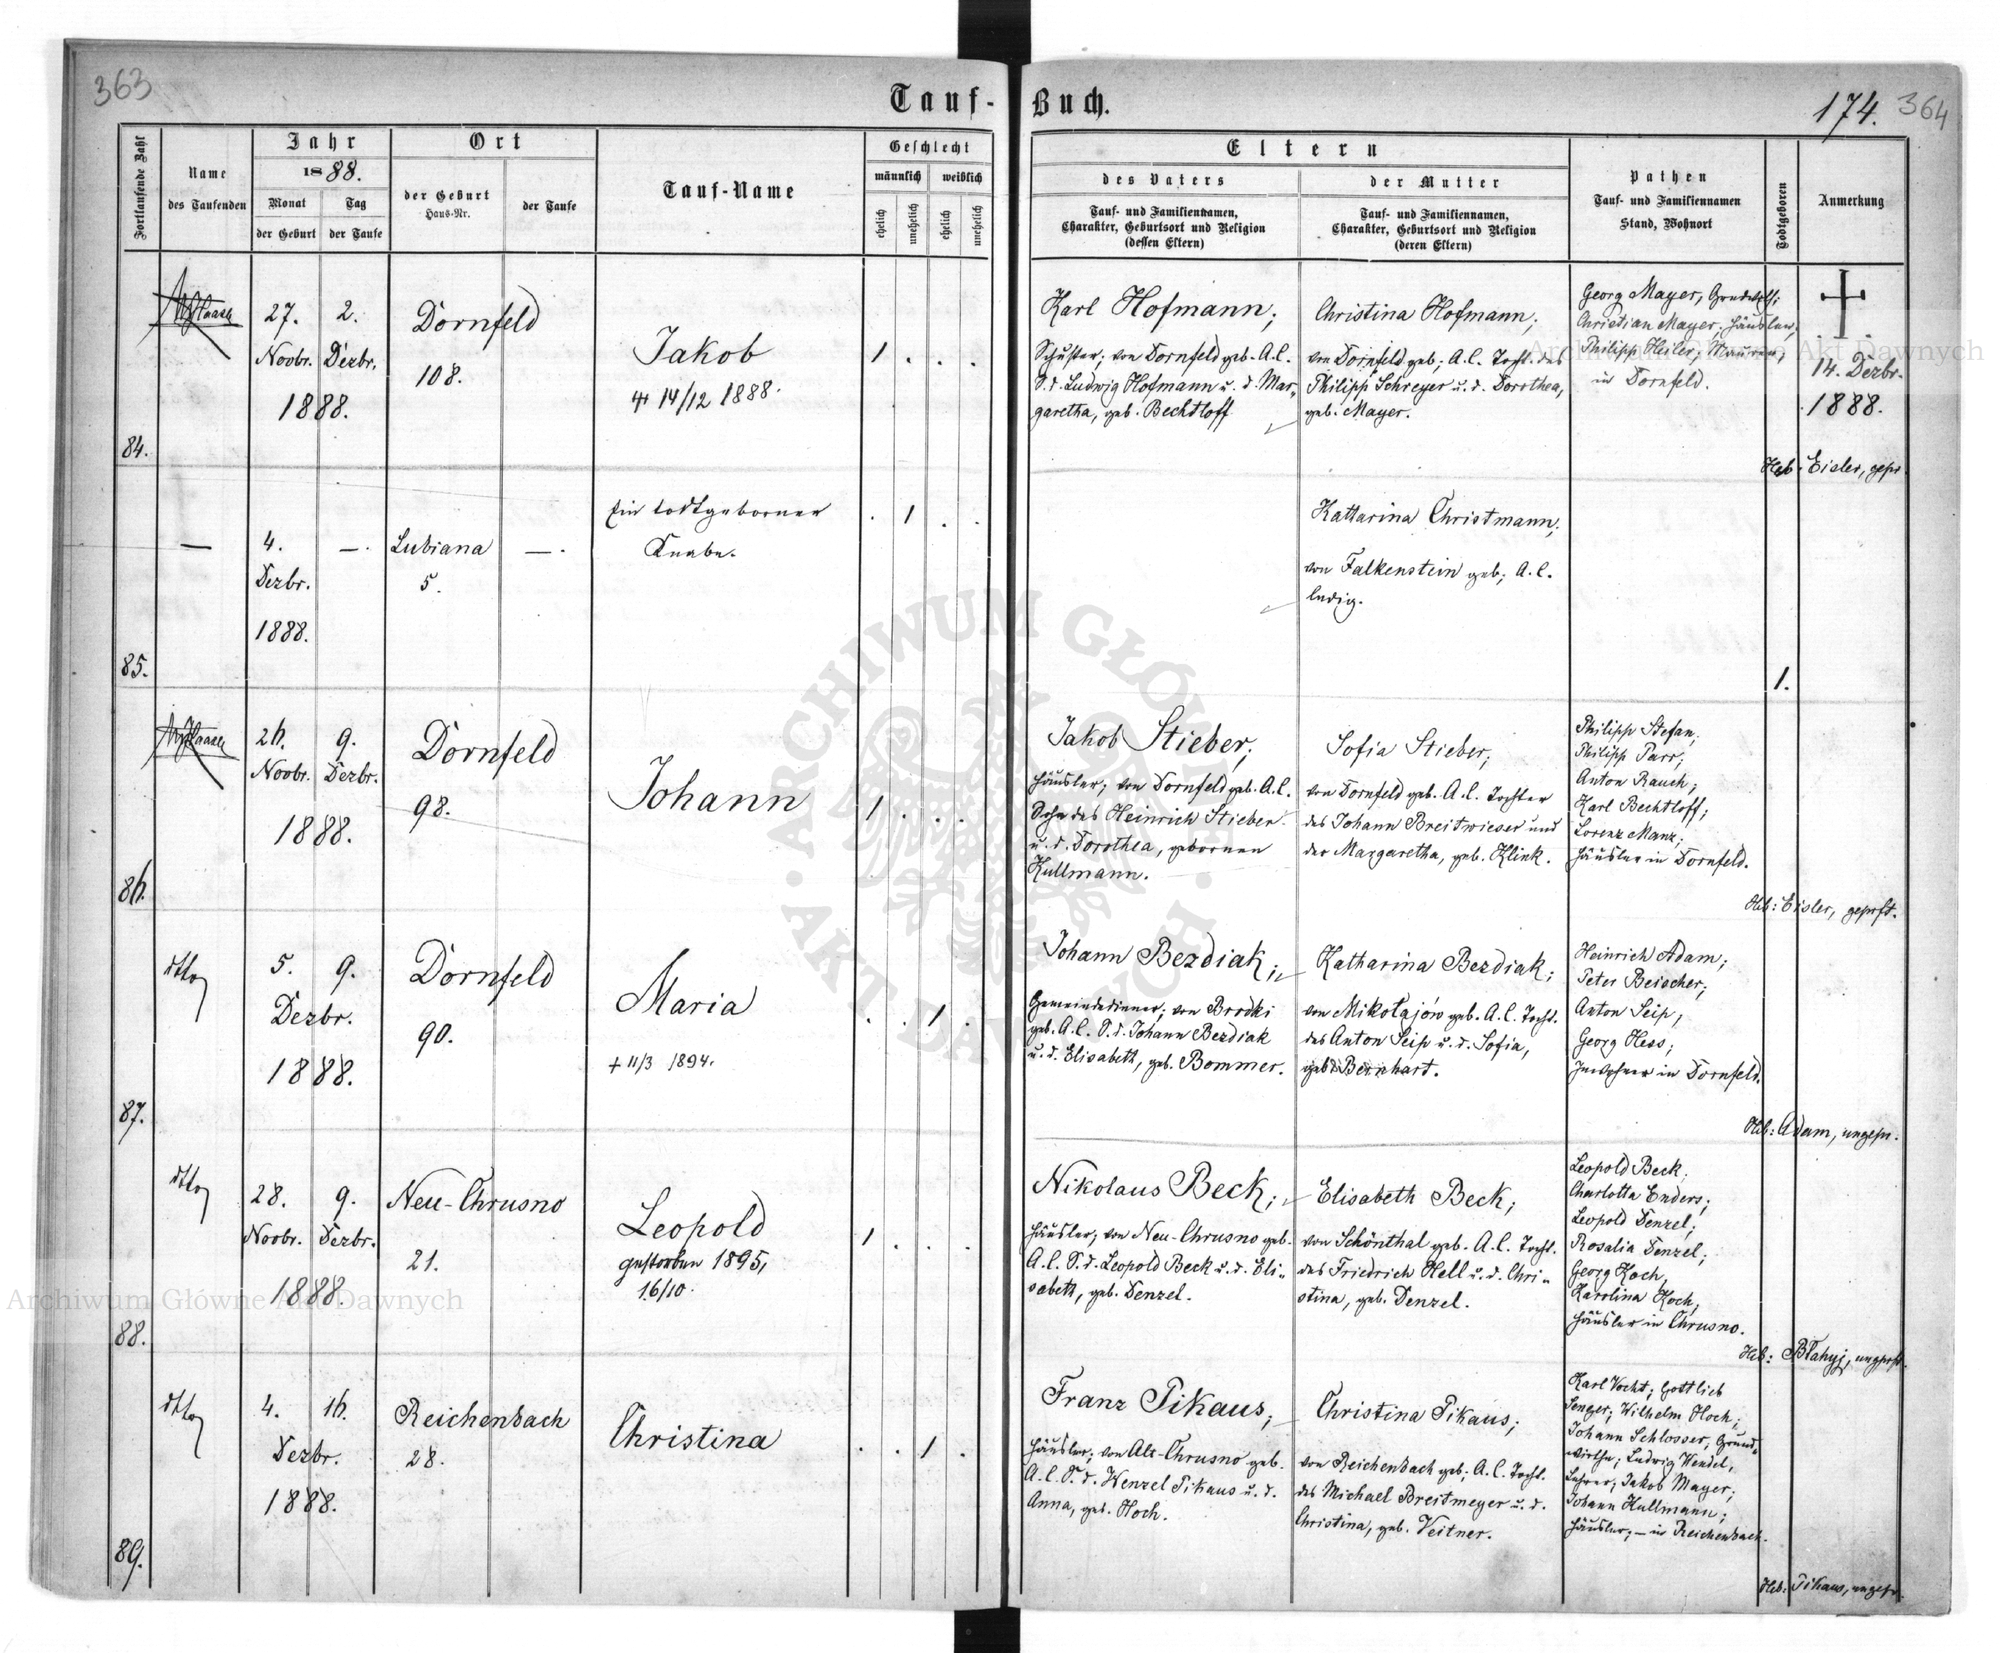 363
Tauf-
Buch.
174. 364
Fortlaufende Zahl
Name
des Taufenden
Jahr
1888.
Monat
der Geburt
Tag
der Taufe
Ort
der Geburt
Haus-Nr.
der Taufe
Tauf-Name
Geschlecht
männlich
weiblich
ehelich
unehelich
ehelich
unehelich
Eltern
des Vaters
Tauf- und Familiennamen,
Charakter, Geburtsort und Religion
(dessen Eltern)
der Mutter
Tauf- und Familiennamen,
Charakter, Geburtsort und Religion
(deren Eltern)
Pathen
Tauf- und Familiennamen
Stand, Wohnort
Todtgeboren
Anmerkung
84.
27.
Novbr.
2.
Dezbr.
1888.
Dornfeld
108.
Jakob
14/12 1888.
1 . . .
Karl Hofmann;
Schuster; von Dornfeld geb. A.C.
S.d. Ludwig Hofmann u. d. Mar-
garetha, geb. Bechtloff
Christina Hofmann;
von Dornfeld geb; A.C. Tocht. des
Philipp Schreyer u. d. Dorothea,
geb. Mayer.
Georg Mayer,
Christian Mayer; Häusler;
Philipp Heiler; Maurer;
in Dornfeld.
14. Dezbr.
1888.
Heb: Eisler, gepr.
85.
—
4.
Dezbr.
1888.
—.
Lubiana
5.
—.
Ein todtgeborner
Knabe.
. 1 . .
Kattarina Christmann;
von Falkenstein geb; A.C.
ledig.
1.
86.
26.
Novbr.
9.
Dezbr.
1888.
Dornfeld
98.
Johann
1 . . .
Jakob Stieber;
Häusler; von Dornfeld geb. A.C.
Sohn des Heinrich Stieber
u. d. Dorothea, gebornen
Kullmann.
Sofia Stieber;
von Dornfeld geb. A.C. Tochter
des Johann Breitwieser und
der Margaretha, geb. Klink.
Philipp Stefan;
Philipp Parr;
Anton Rauch;
Karl Bechtloff;
Lorenz Manz;
Häusler in Dornfeld.
Heb: Eisler, geprft.
87.
dtto
5.
9.
Dezbr.
1888.
Dornfeld
90.
Maria
+ 11/3 1894.
. . 1 .
Johann Bezdiak;
Gemeindediener; von Brodki
geb. A.C. S.d. Johann Bezdiak
u. d. Elisabeth, geb. Bommer.
Katharina Bezdiak;
von Mikołajów geb. A.C. Tocht.
des Anton Seip u. d. Sofia,
geb. Bernhart.
Heinrich Adam;
Peter Beischer;
Anton Seip;
Georg Hess;
Inwohner in Dornfeld.
Heb: Adam, ungepr.
88.
dtto
28.
Novbr.
9.
Dezbr.
1888.
Neu-Chrusno
21.
Leopold
gestorben 1895,
16/10.
1 . . .
Nikolaus Beck;
Häusler; von Neu-Chrusno geb.
A.C. S.d. Leopold Beck u. d. Eli-
sabeth, geb. Denzel.
Elisabeth Beck;
von Schönthal geb. A.C. Tocht.
des Friedrich Hell u. d. Chri-
stina, geb. Denzel.
Leopold Beck;
Charlotta Enders;
Leopold Denzel;
Rosalia Denzel;
Georg Koch,
Karolina Koch,
Häusler in Chrusno.
Heb: Błahyj, ungeprft.
89.
dtto
4.
16.
Dezbr.
1888.
Reichenbach
28.
Christina
. . 1 .
Franz Pikaus;
Häusler; von Alt-Chrusno geb.
A.C. S.d. Wenzel Pikaus u. d.
Anna, geb. Hoch.
Christina Pikaus;
von Reichenbach geb; A.C. Tocht.
des Michael Breitmeyer u. d.
Christina, geb. Veitner.
Karl Vocht; Gottlieb
Senger; Wilhelm Hoch;
Johann Schlosser, Grund-
wirthe; Ludwig Wendel,
Lehrer; Jakob Mayer;
Johann Kullmann;
Häusler; — in Reichenbach.
Heb: Pikaus, ungepr.
Archiwum Główne Akt Dawnych
Archiwum Główne Akt Dawnych
ARCHIWUM GŁÓWNE AKT DAWNYCH